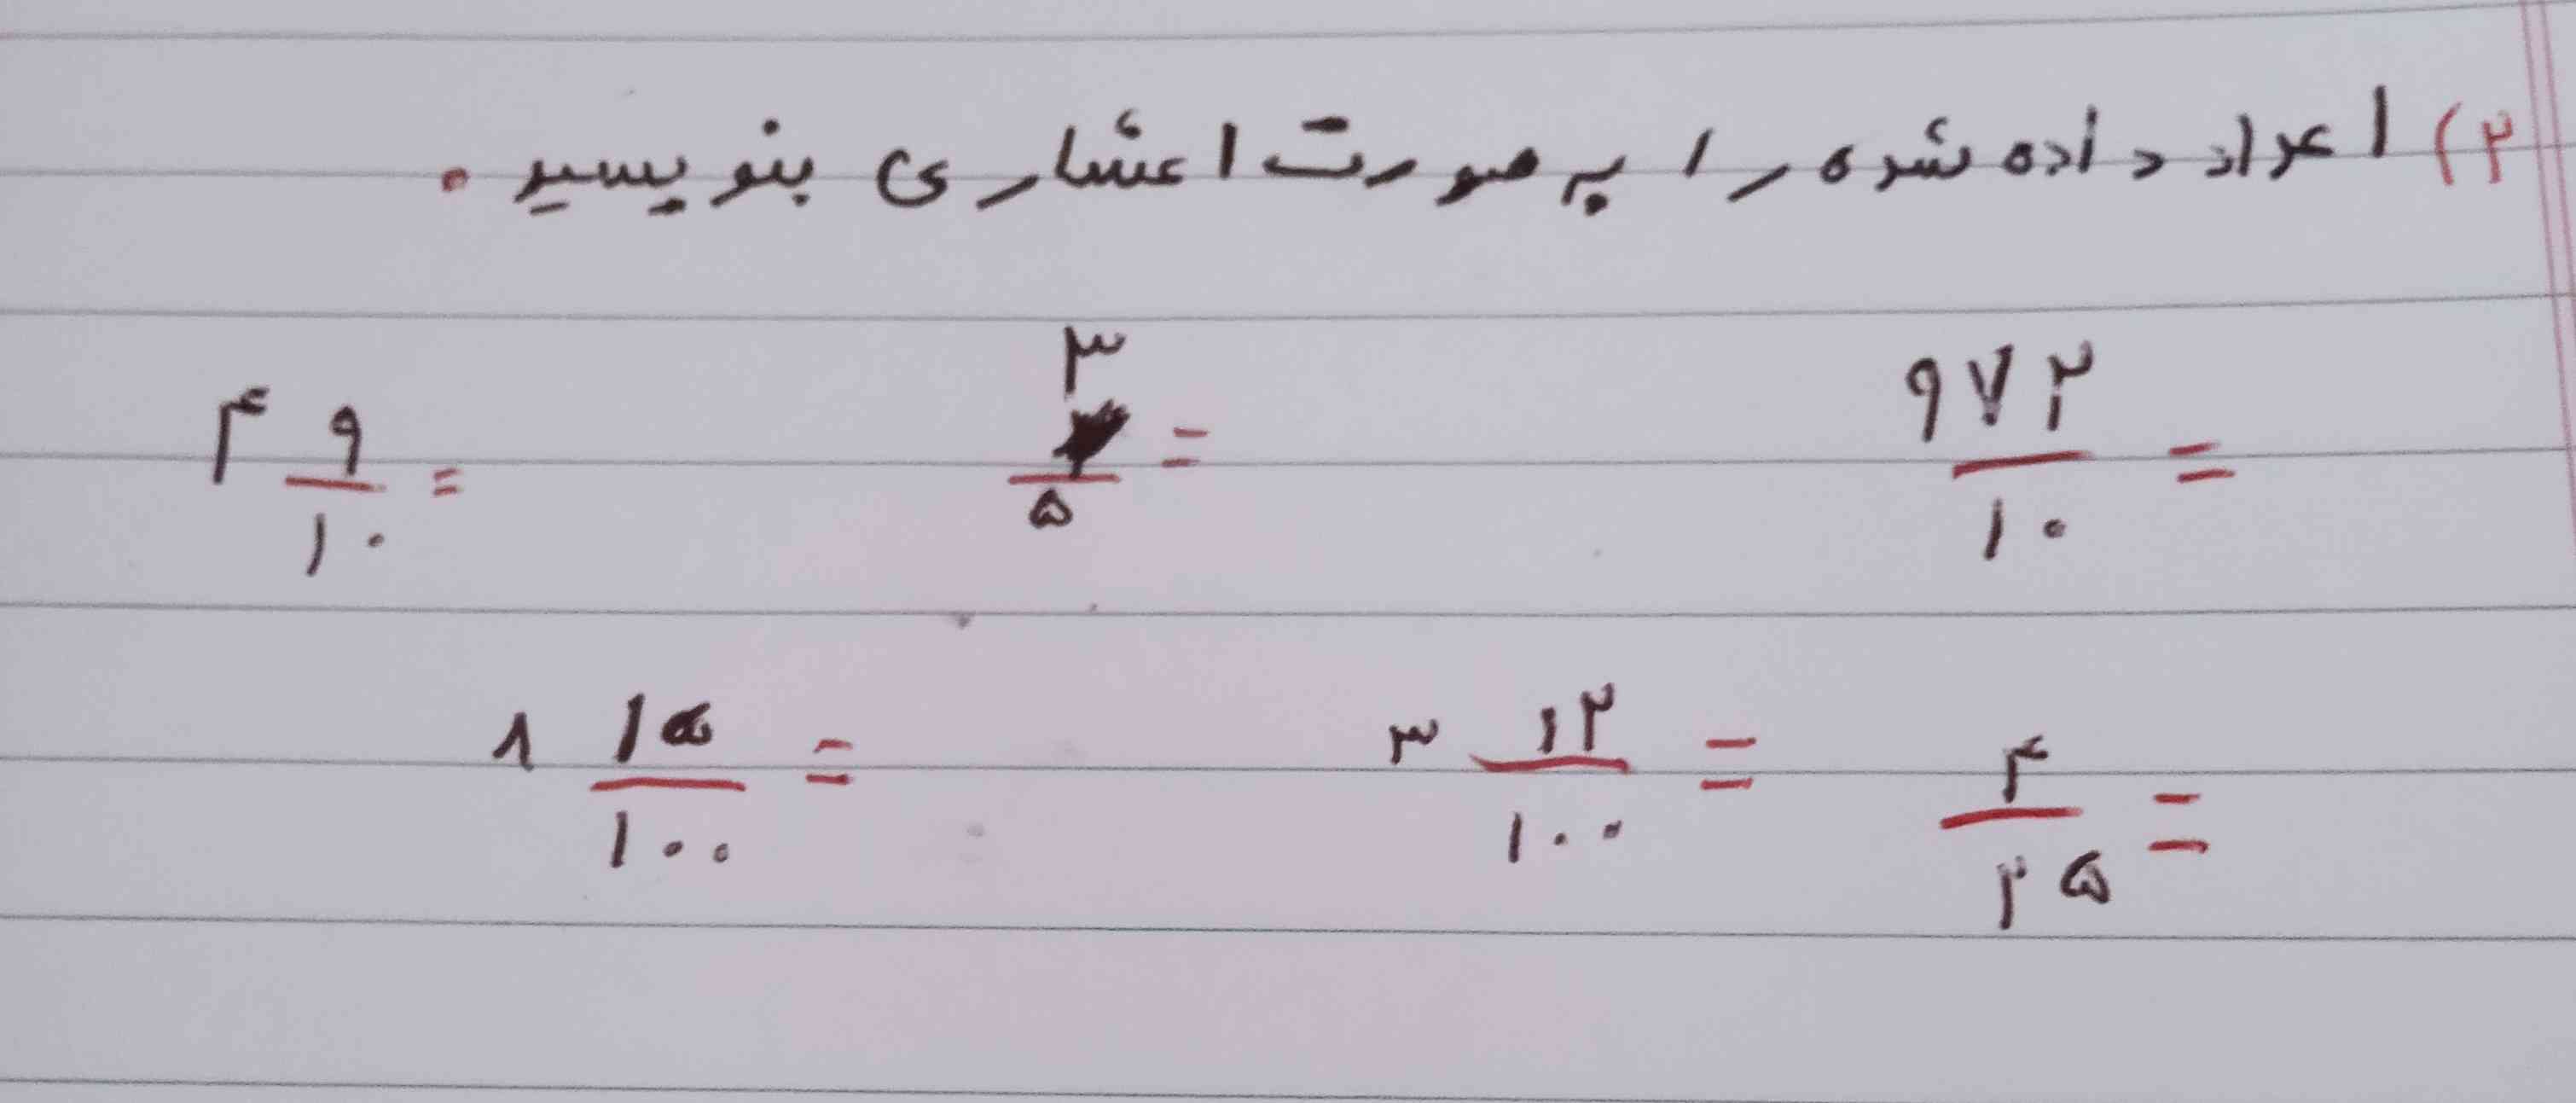 ۲) اعداد داده شده را به صورت اعشاری بنویسید.
۹۷۲/۱۰ = ۳/۵ = ۴ ۹/۱۰ =
۴/۲۵ = ۳ ۱۲/۱۰۰ = ۸ ۱۵/۱۰۰ =